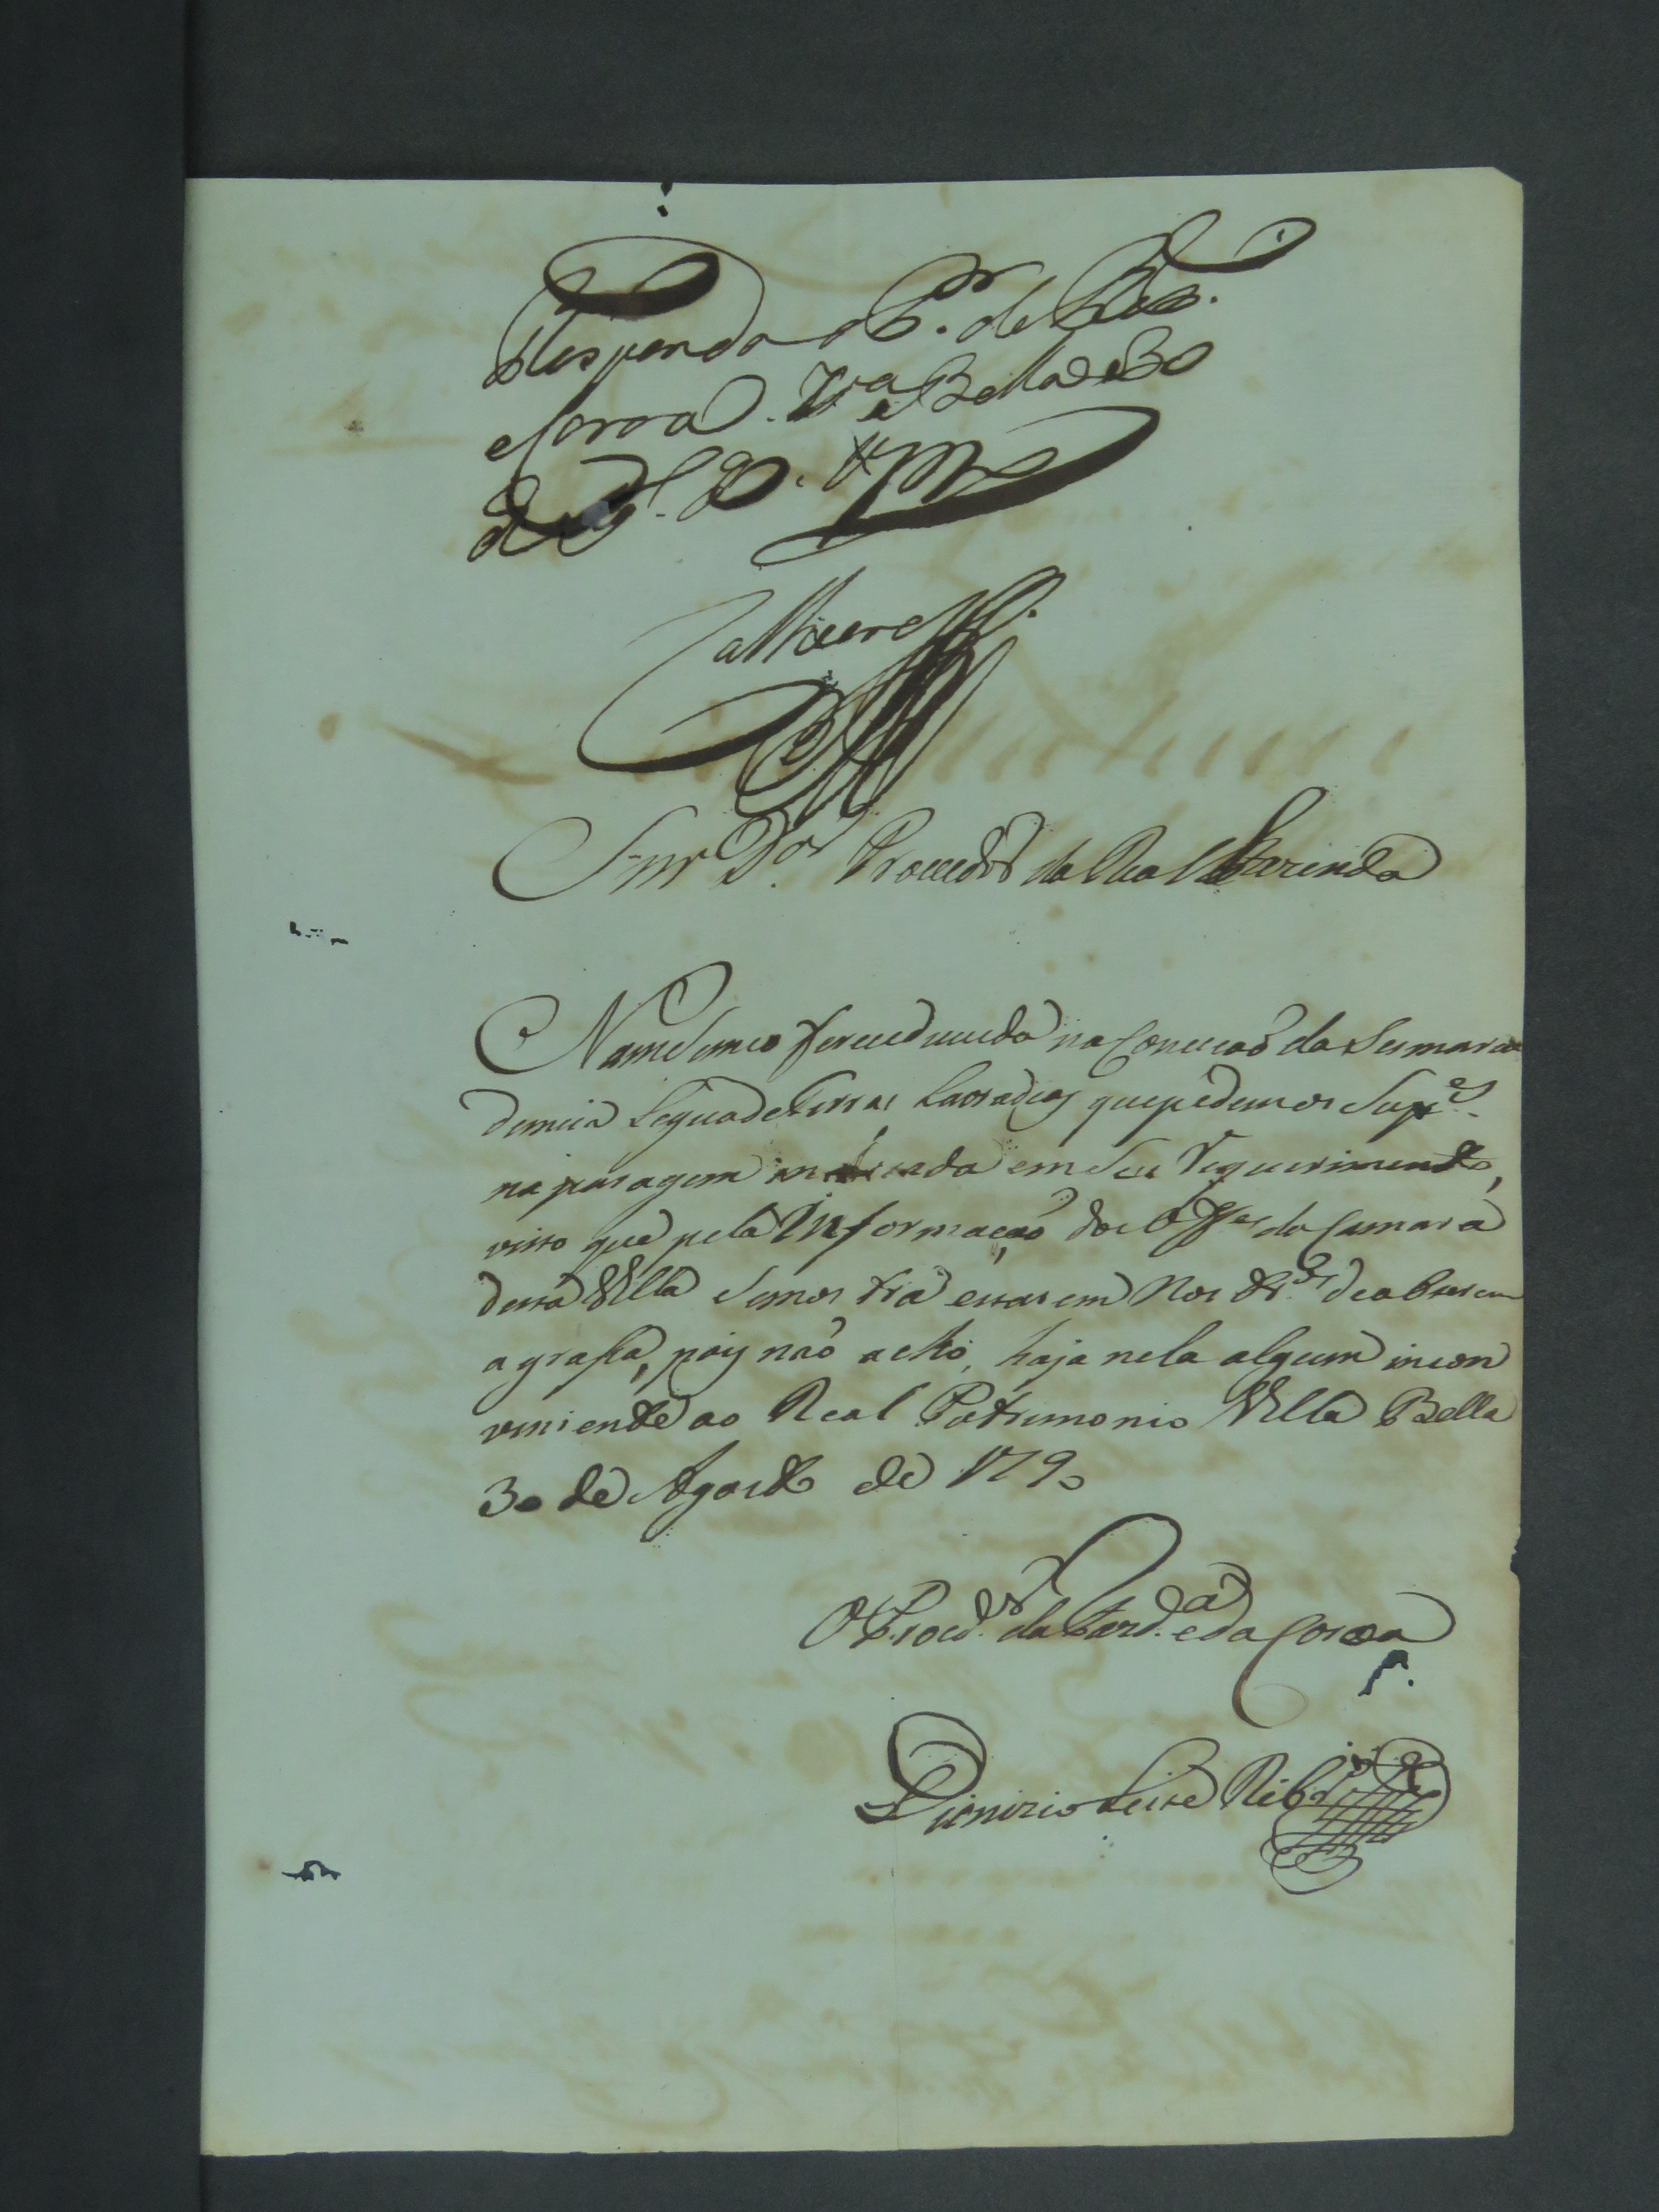 Responda o P.or da Faz.
e Coroa. V.a Bella 30
de Ag.to
Snr D.or Provedor da Real Fazenda
Nam Semeo ferece duvida na Concecaõ da Sesmaria
demeia Legua deterras Lavradias que pedem os Sup.es
na paragem indicada em Seu Requerimento,
visto que pela Informaçaõ dos Off.es da Camara
desta Villa Semostra estarem nos tr.os de obterem
a grassa, pois naõ acho, haja nela algum incon
veniente ao Real Patrimonio Villa Bella
30 de Agosto de 1790
O Procd.or da Fazd.a e da Coroa
Dionizio Leite Ribr.o